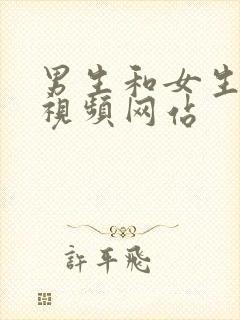 男生和女生
視頻网佔
許平飛